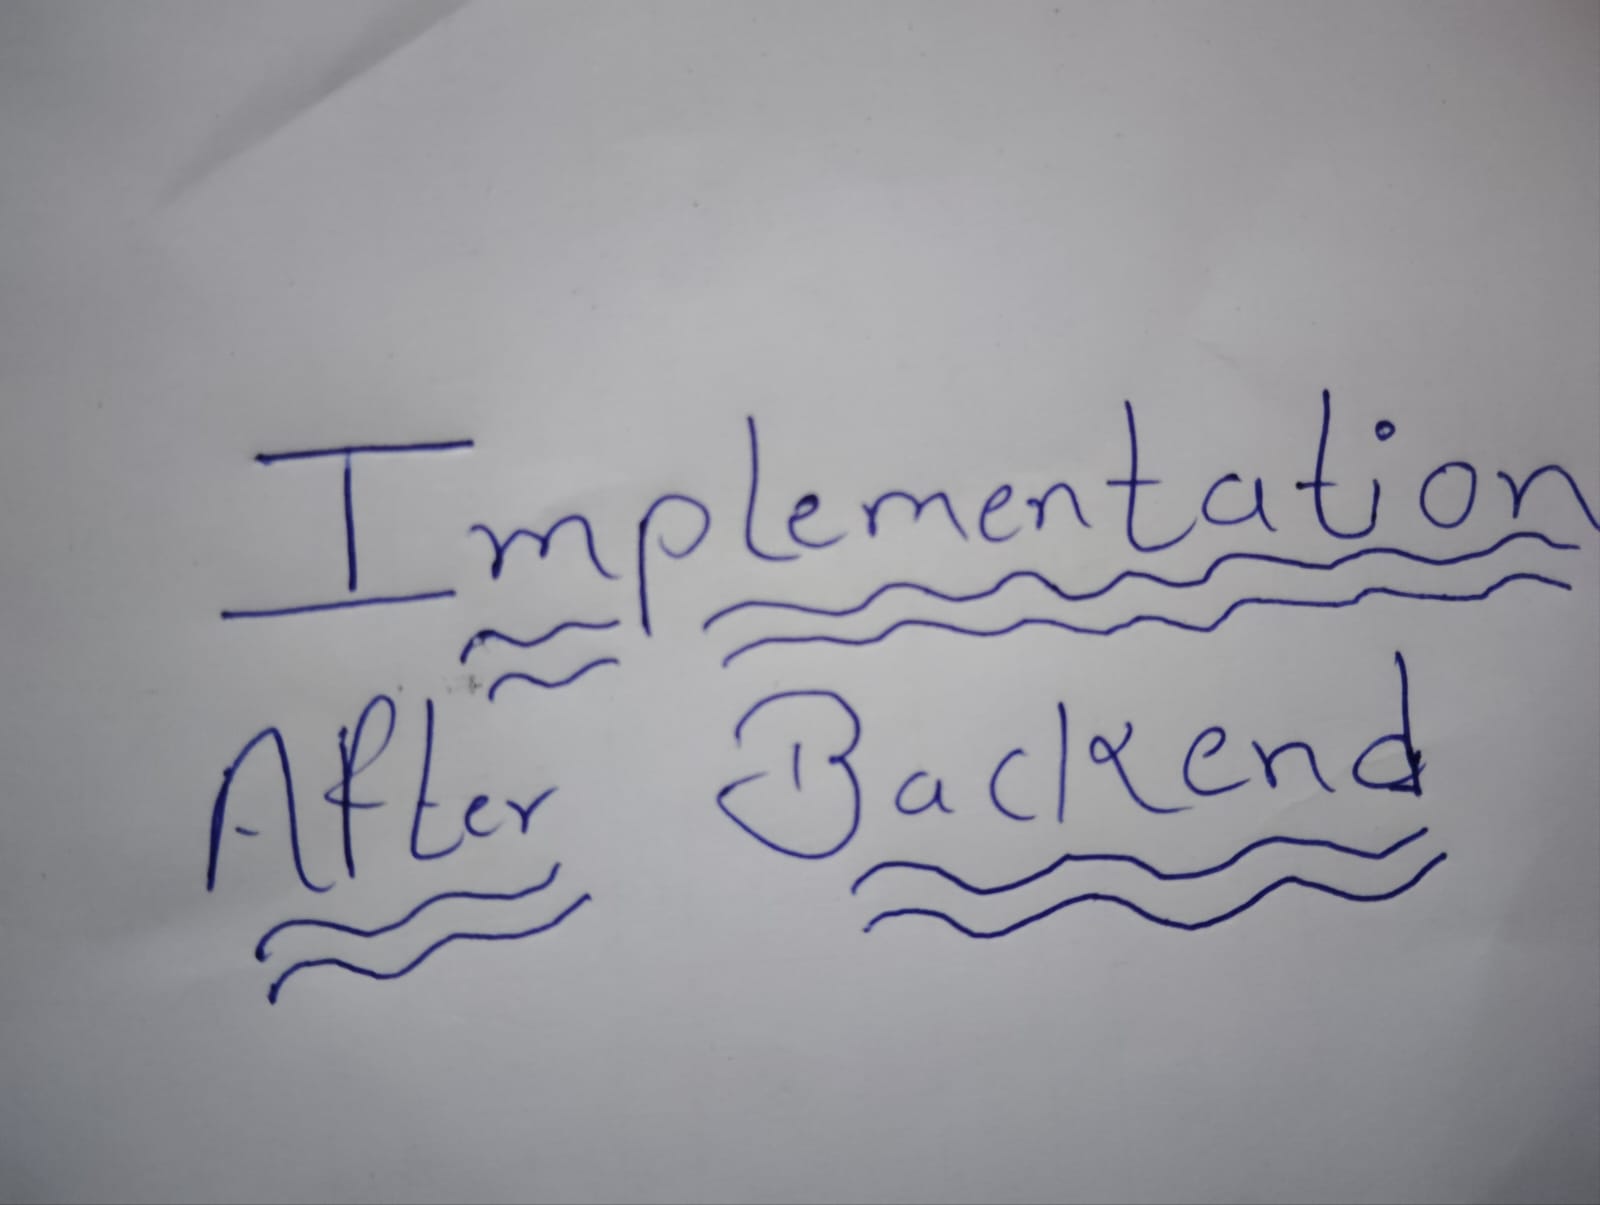 Implementation
After Backend